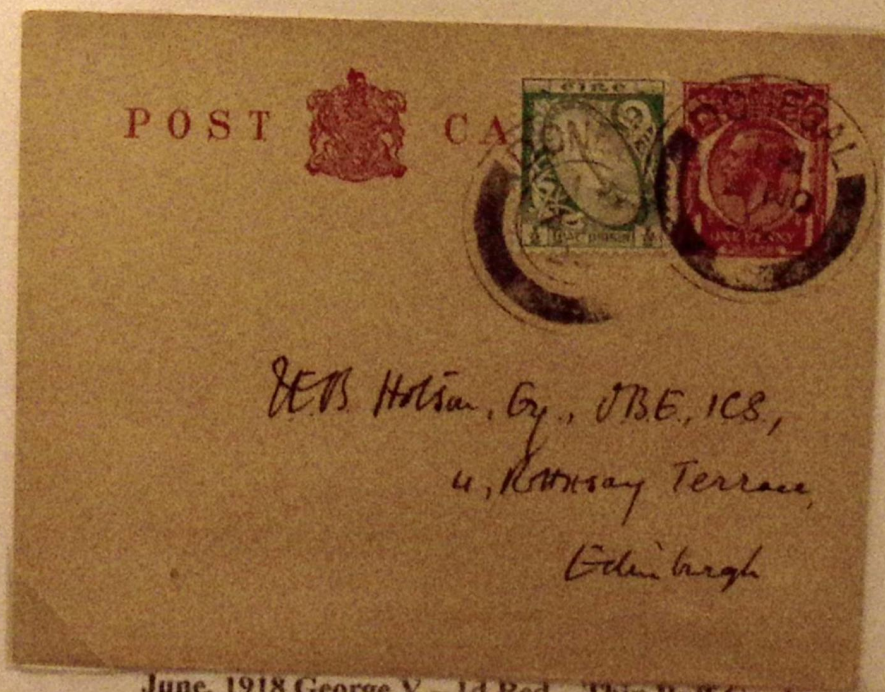 POST CA
EIRE
DONEGAL
NO
ONE PENNY
J.E.B. Hotson, Esq., O.B.E., I.C.S.,
4, Ramsay Terrace,
Edinburgh
June, 1918 George V – 1d Red